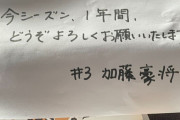 今シーズン、1年間、
どうぞよろしくお願いいたしま
#3 加藤豪将